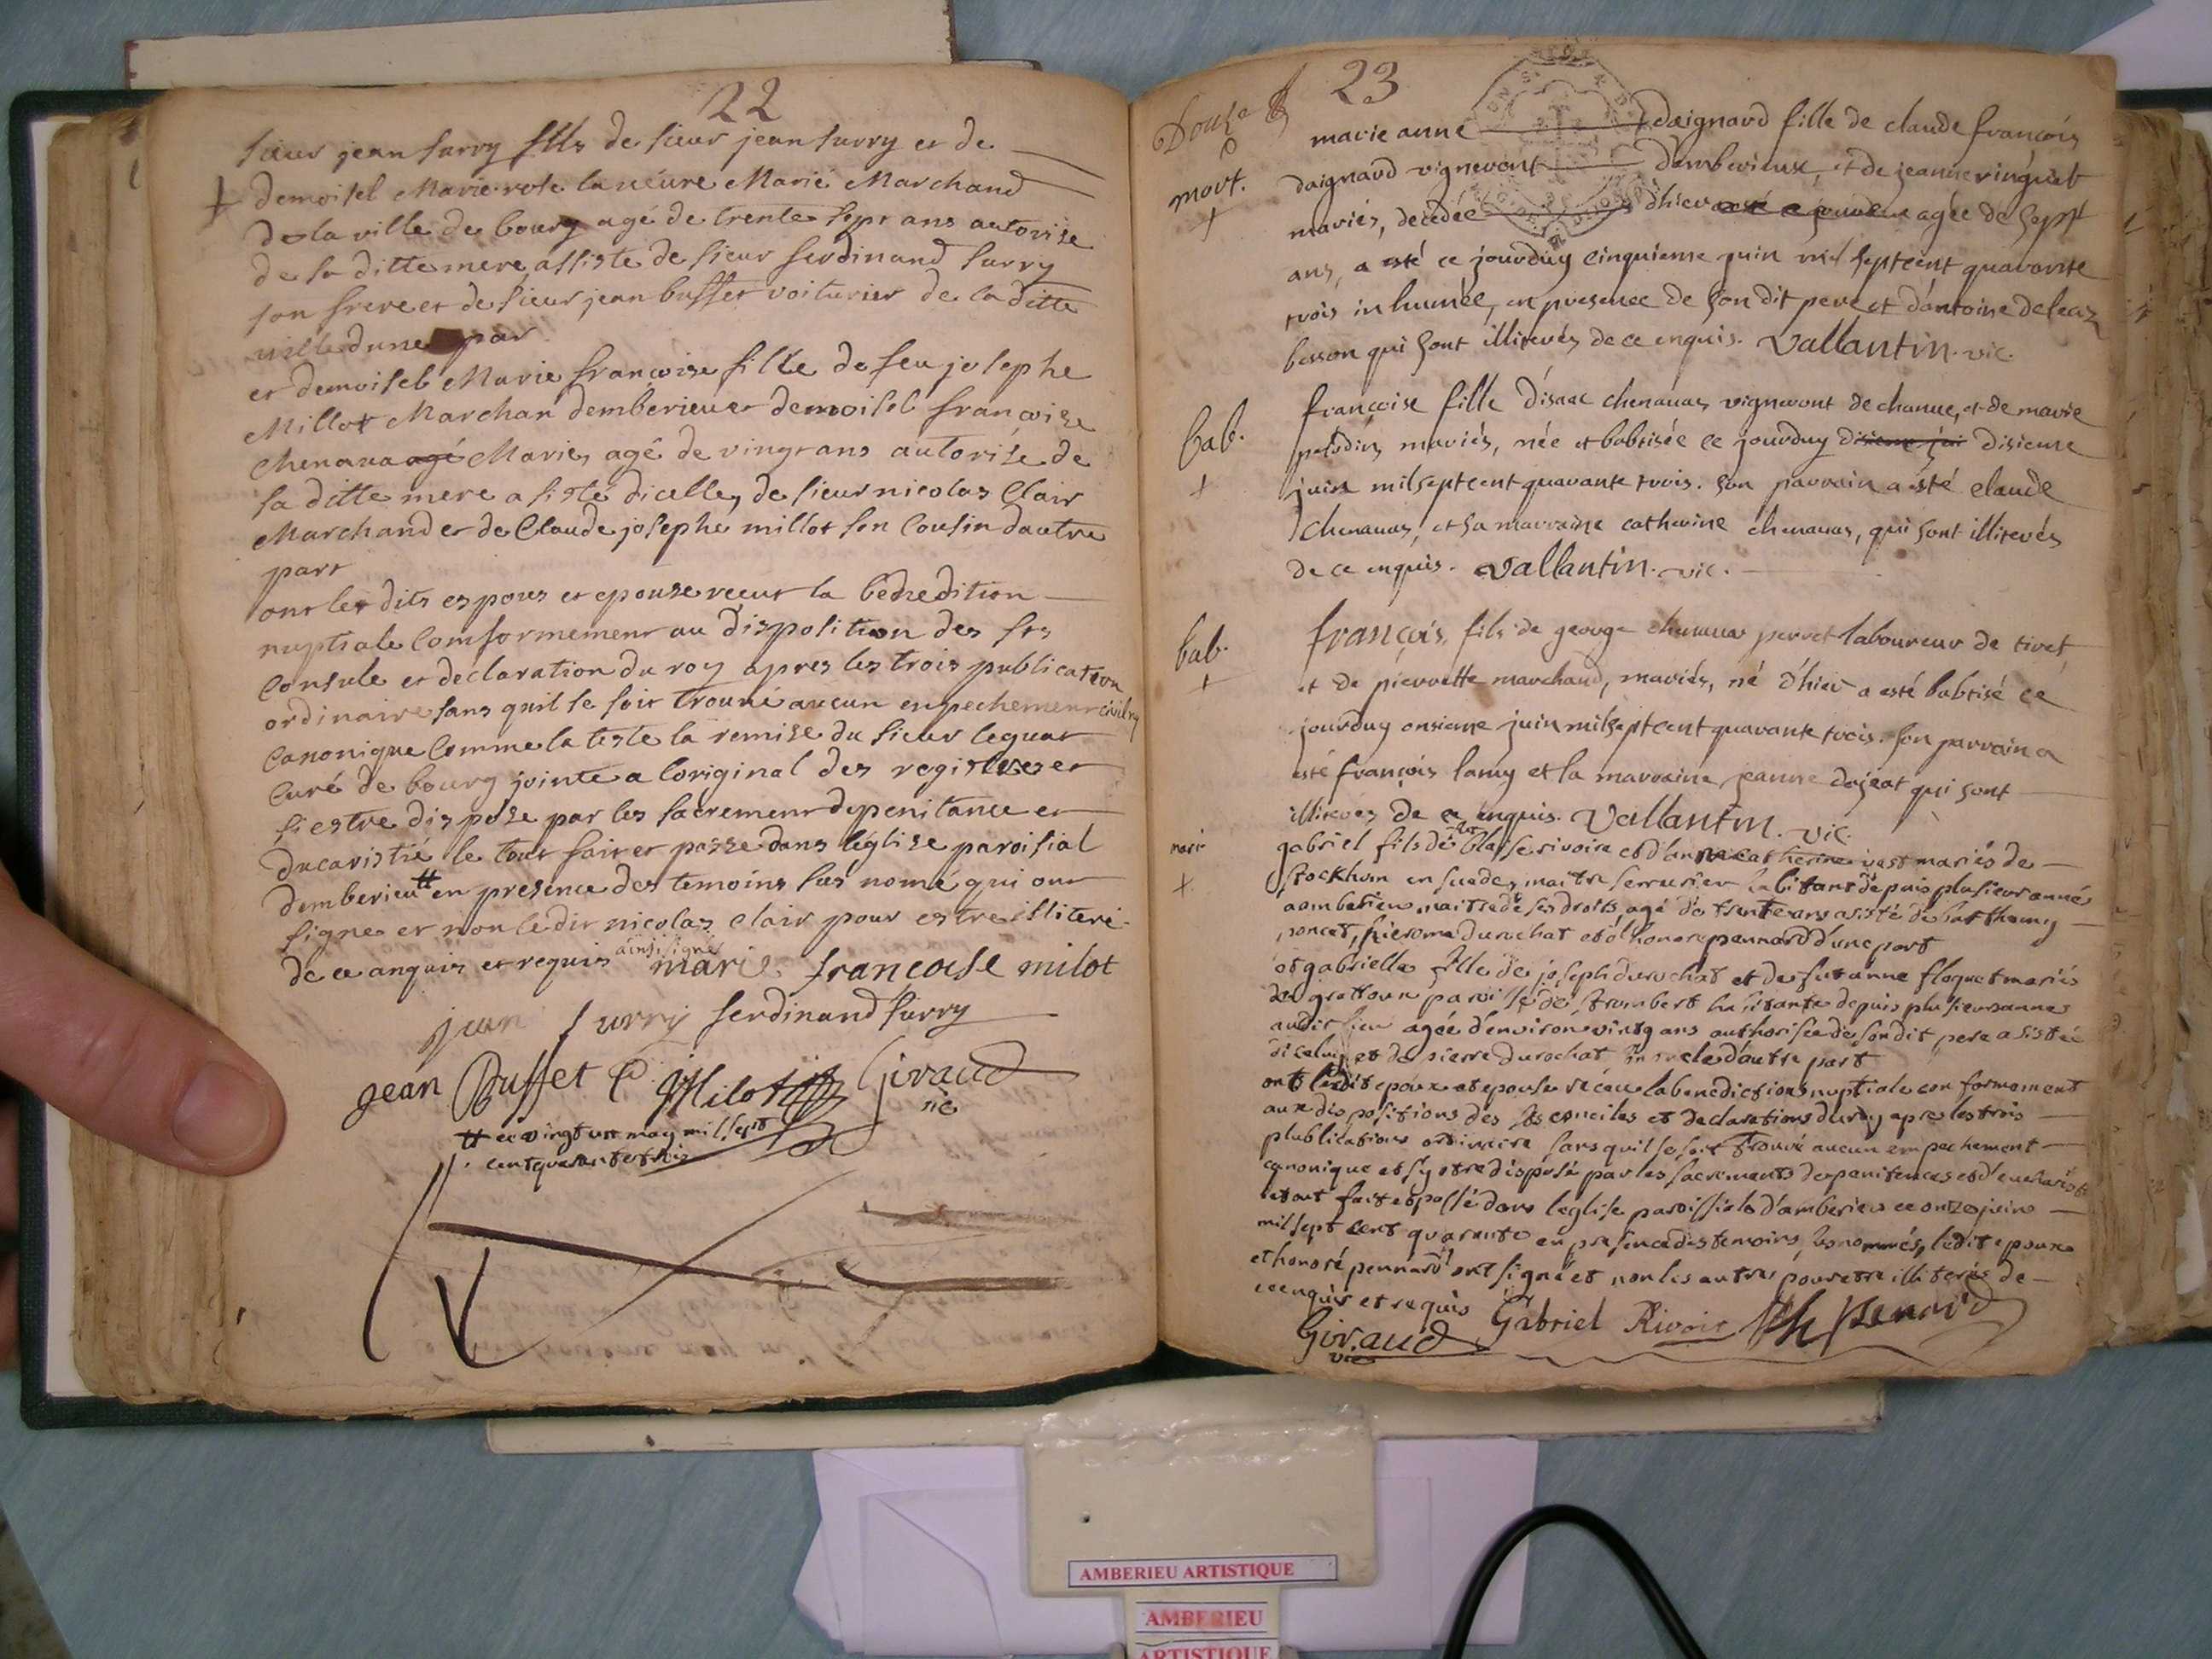 22
sieur jean surry fils de sieur jean surry et de
demoisel Marie rose Marie Marchand
de la ville de bourg agé de trente sept ans autorise
de sa ditte mere assiste de sieur ferdinand surry
son frere et de sieur jean buffet voiturier de la ditte
ville dune par
et demoisel Marie francoise fille de feu josephe
Millot Marchan demberieu et demoisel francoise
chenava Maries agé de vingt ans autorise de
sa ditte mere asisté dicelle, de sieur nicolas Clair
Marchand et de Claude josephe millot son Cousin dautre
part
ont les dits espous et epouse receut la benedition
nuptiale Comformement au disposition des sts
Consile et declaration du roy apres les trois publication
ordinaire sans quil se soit trouvé aucun enpechement civil ny
Canonique Comme la teste la remise du sieur
Curé de bourg jointe a loriginal des registres et
si estre dispose par les sacrement de penitance et
ducaristié le tout fait et passe dans léglise paroisial
demberieu # en presence des temoins sus nomé qui ont
signe et non le dit nicolas clair pour estre illiteré
de ce anquis et requis ainsi signé marie francoise milot
jean surry ferdinand surry
jean Buffet C J Milot Giraud
vic
# ce vingt un may mil sept
cent quarante trois
23
Douze
mort.
+
marie anne daignard fille de claude francois
daignard vigneront damberieux, et de jeanne ringuet
mariés, decedée d'hier agée de sept
ans, a esté ce jourduy cinquieme juin mil sept cent quarante
trois inhumée, en presence de son dit pere et d'antoine deleaz
besson qui sont illiterés de ce enquis. Vallantin. vic.
bab.
+
francoise fille d'isaac chenavas vigneront de chanue, et de marie
paladin mariés, née et babtisée ce jourduy disieme
juin mil sept cent quarante trois. son parrain a esté claude
chenavas, et sa marraine catherine chenavas, qui sont illiterés
de ce enquis. Vallantin. vic.
bab.
+
françois, fils de george perret laboureur de tiret
et de pierrette marchand, mariés, né d'hier a esté babtisé ce
jourduy onsieme juin mil sept cent quarante trois. son parrain a
esté françois lamy et la marraine jeanne dajeat qui sont
illiterés de ce enquis. Vallantin. vic.
mari
+
gabriel fils de blaise rivoire et d'anne catherine vast mariés de
stockhom en suede, maitre serrurier habitant depuis plusieur année
a amberieu, maitre de ses droits, agé de trente ans asisté de barthemy
poncet, hierome durochat et d'honoré pennard d'une part
et gabrielle fille de joseph durochat et de susanne floquet mariés
de gratoux paroisse de st rambert habitante depuis plusieurs année
audit lieu agée d'environ vingt ans authorisée de son dit pere asistée
diceluy et de pierre durochat d'autre part
ont lesdit epoux et epouse réceu la benediction nuptiale conformement
aux dispositions des sts conciles et declarations du roy apres les trois
plublications ordinaire sans quil se soit trouvé aucun empechement
canonique et s'y etre disposé par les sacrements de penitences et d'eucharistie
le tout fait et passé dans leglise paroissiale d'amberieu ce onze juin
mil sept cent quarante en presence des temoins sus nommés, ledit epoux
et honoré pennard ont signé et non les autres pour etre illiterés de
ce enquis et requis Gabriel Rivoire Penard
Giraud
vic
AMBERIEU ARTISTIQUE
AMBERIEU
ARTISTIQUE